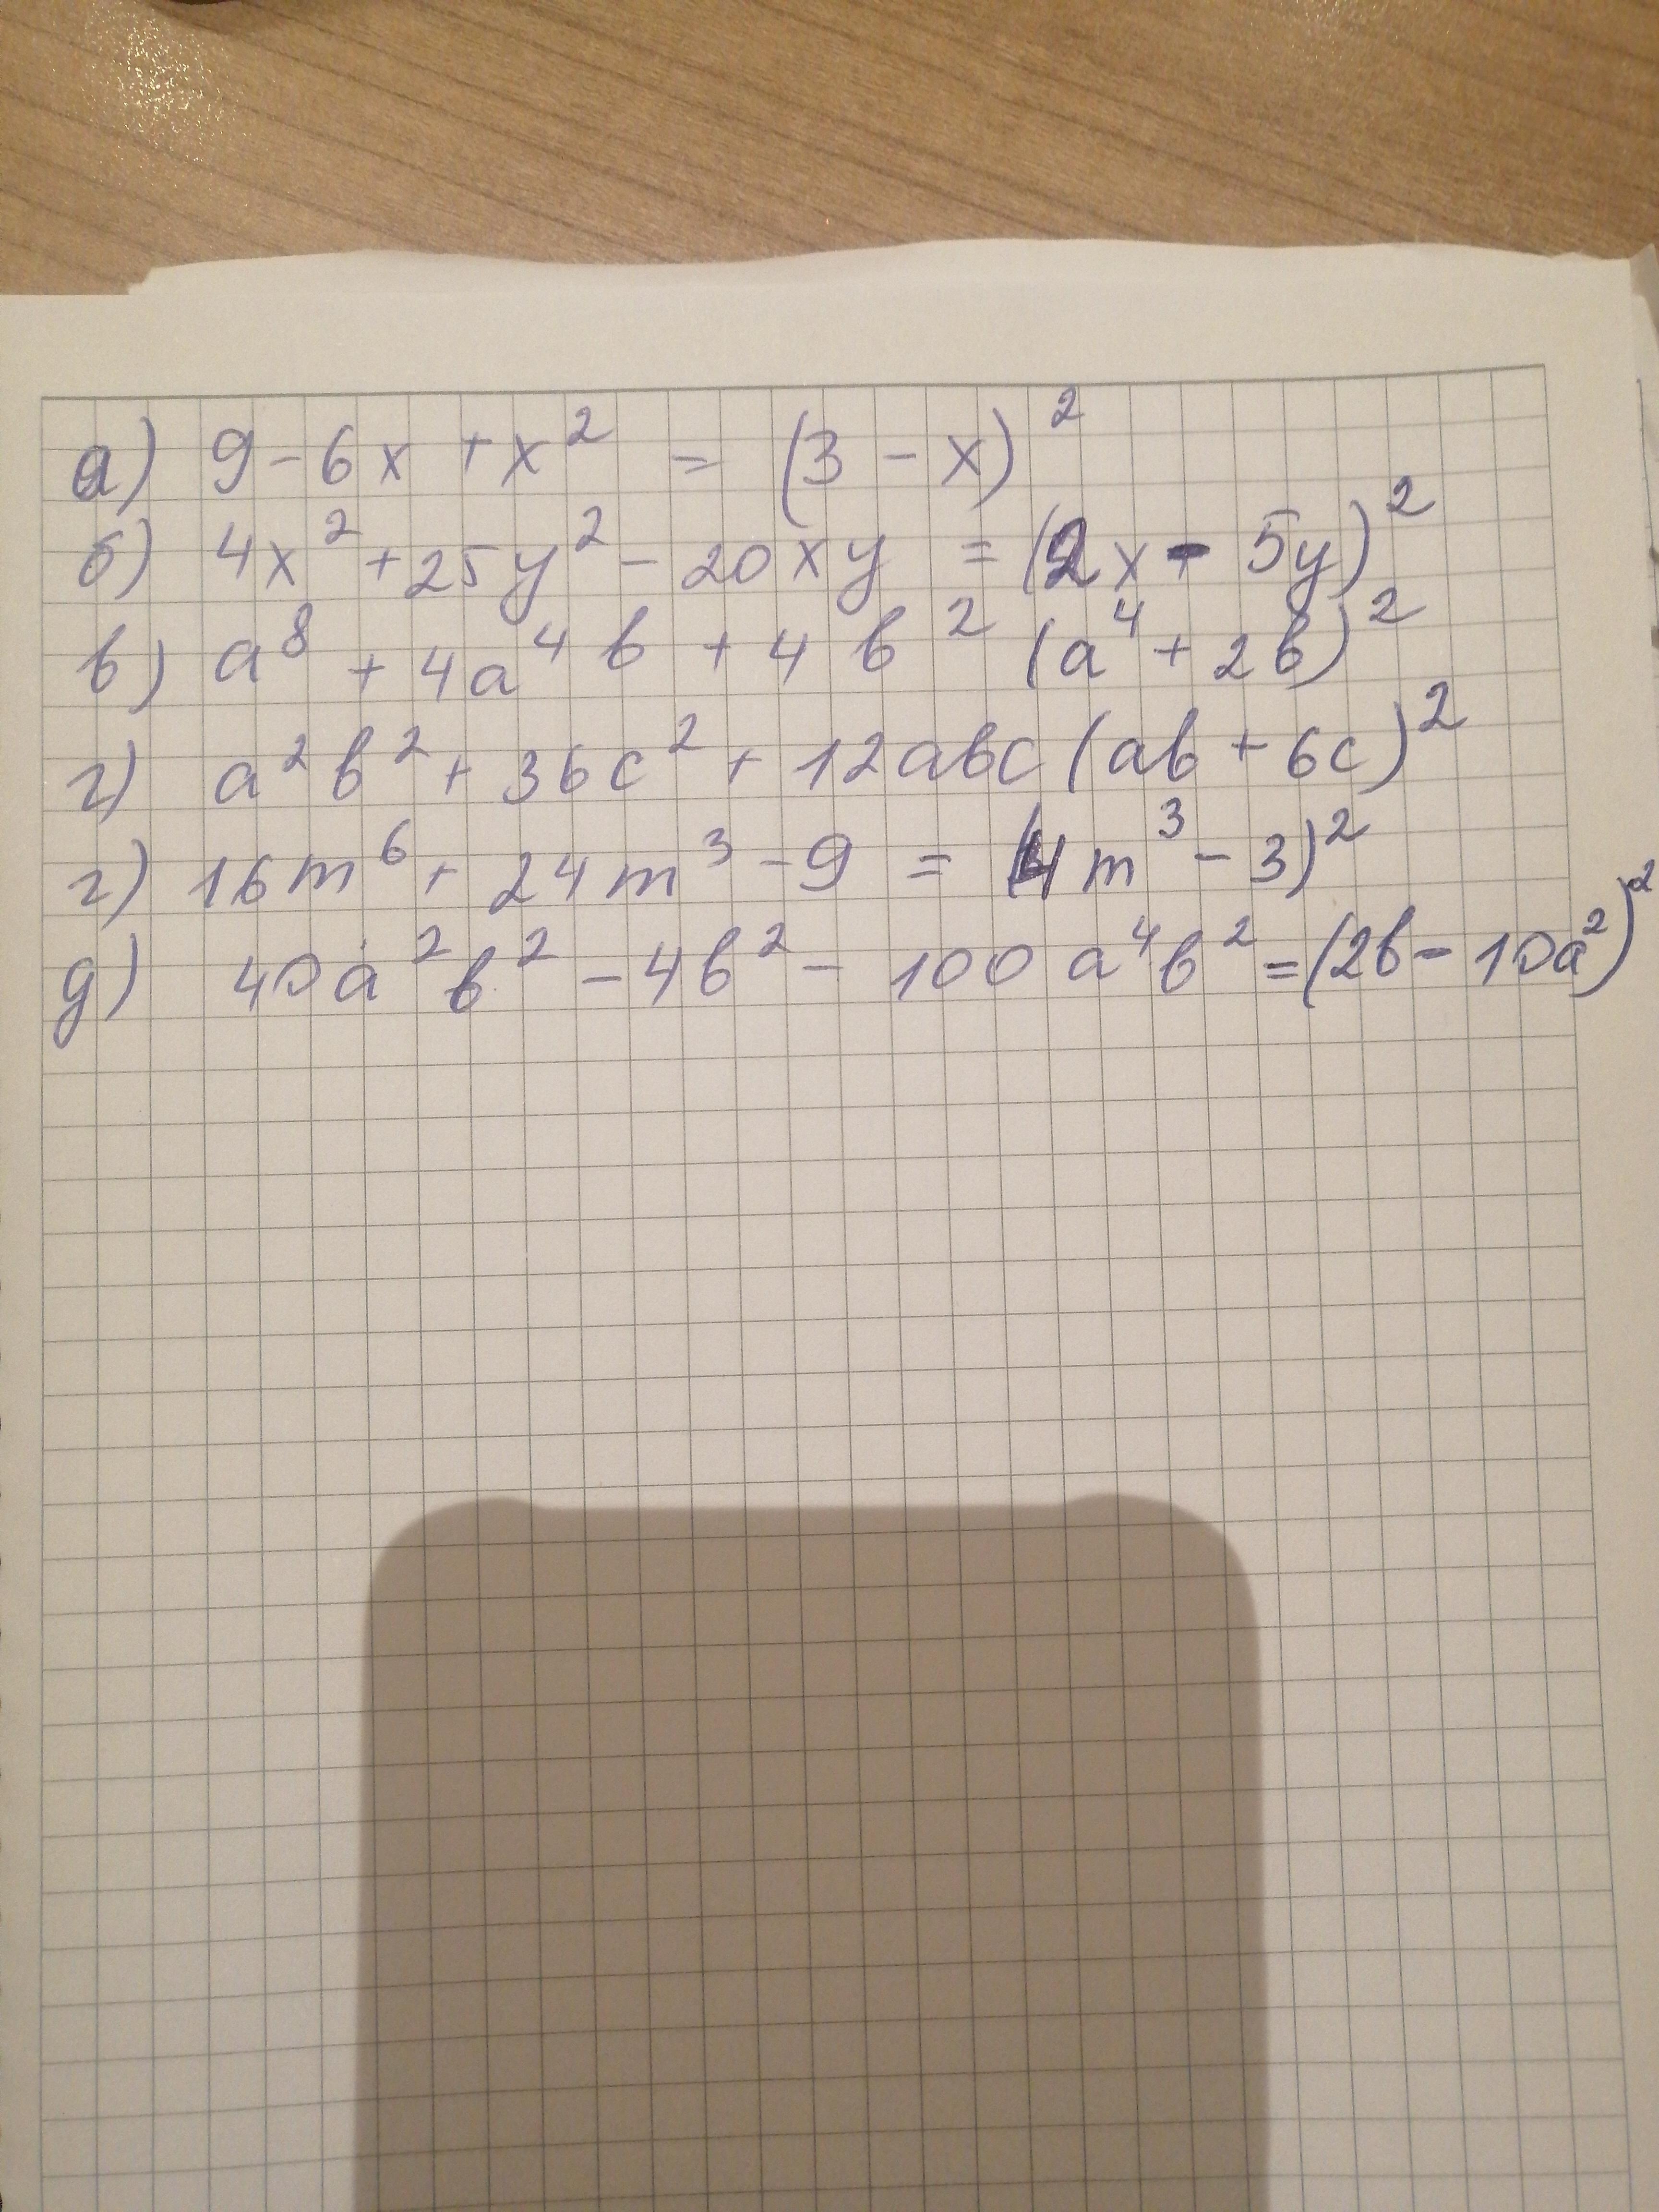 а) 9 - 6x + x² = (3 - x)²
б) 4x² + 25y² - 20xy = (2x - 5y)²
в) a⁸ + 4a⁴b + 4b² (a⁴ + 2b)²
г) a²b² + 36c² + 12abc (ab + 6c)²
г) 16m⁶ + 24m³ - 9 = (4m³ - 3)²
д) 40a²b² - 4b² - 100a⁴b² = (2b - 10a²)²